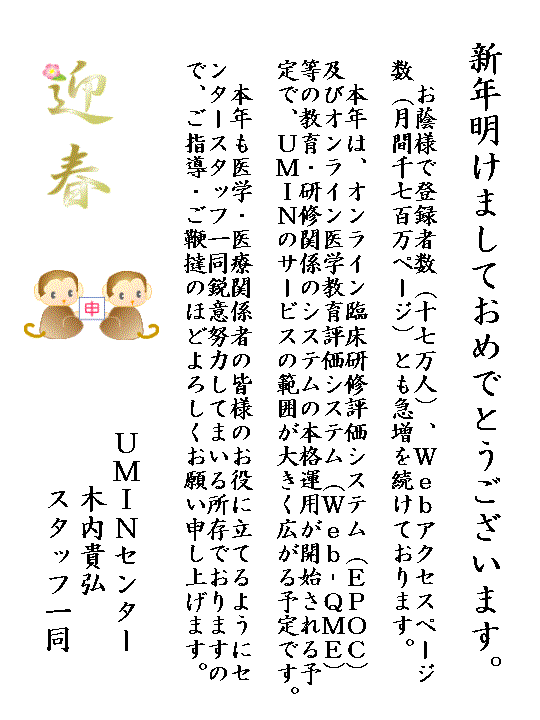 新年明けましておめでとうございます。
お蔭様で登録者数（十七万人）、Ｗｅｂアクセスページ
数（月間千七百万ページ）とも急増を続けております。
本年は、オンライン臨床研修評価システム（ＥＰＯＣ）
及びオンライン医学教育評価システム（Ｗｅｂ-ＱＭＥ）
等の教育・研修関係のシステムの本格運用が開始される予
定で、ＵＭＩＮのサービスの範囲が大きく広がる予定です。
本年も医学・医療関係者の皆様のお役に立てるようにセ
ンタースタッフ一同鋭意努力してまいる所存でおりますの
で、ご指導・ご鞭撻のほどよろしくお願い申し上げます。
迎春
申
ＵＭＩＮセンター
木内貴弘
スタッフ一同